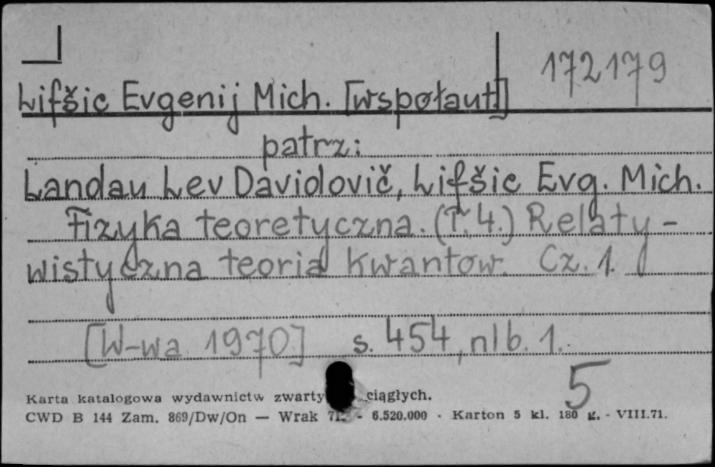 172179
Lifšic Evgenij Mich. [współaut.]
patrz:
Landau Lev Davidovič, Lifšic Evg. Mich.
Fizyka teoretyczna. (T. 4.) Relaty-
wistyczna teoria kwantów. Cz. 1.
[W-wa 1970] s. 454, nlb. 1.
5
Karta katalogowa wydawnictw zwarty ciągłych.
CWD B 144 Zam. 869/Dw/On — Wrak 71. - 6.520.000 - Karton 5 kl. 180 g. - VIII.71.